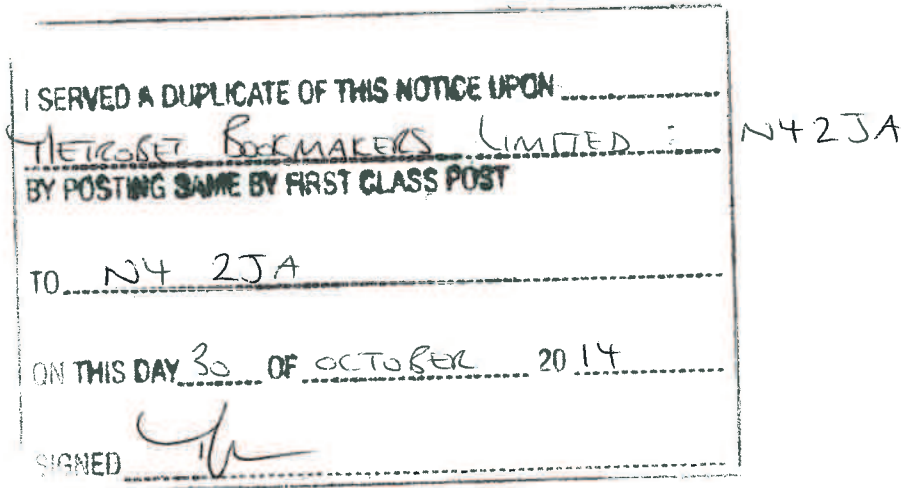 I SERVED A DUPLICATE OF THIS NOTICE UPON
METROBET BOOKMAKERS LIMITED : N42JA
BY POSTING SAME BY FIRST CLASS POST
TO N4 2JA
ON THIS DAY 30 OF OCTOBER 20 14
SIGNED